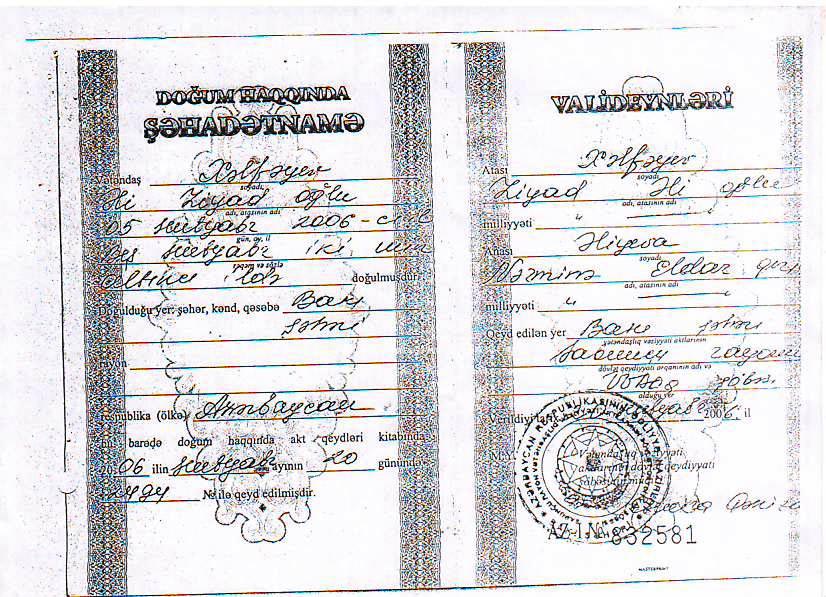 DOĞUM HAQQINDA
ŞƏHADƏTNAMƏ
Vətəndaş Xəlfəyev
soyadı,
Əli Ziyad oğlu
adı, atasının adı
05 sentyabr 2006-cı il
gün, ay, il
beş sentyabr iki min
rəqəm və sözlə
altıncı ildə doğulmuşdur.
Doğulduğu yer: şəhər, kənd, qəsəbə Bakı
şəhəri
rayon
respublika (ölkə) Azərbaycan
bu barədə doğum haqqında akt qeydləri kitabında
2006 ilin sentyabr ayının 20 günündə
№ ilə qeyd edilmişdir.
VALİDEYNLƏRİ
Atası Xəlfəyev
soyadı
Ziyad Əli oğlu
adı, atasının adı
milliyyəti "
Anası Əliyeva
soyadı
Nərminə Eldar qızı
adı, atasının adı
milliyyəti "
Qeyd edilən yer Bakı şəhəri
vətəndaşlıq vəziyyəti aktlarının
rayonu
dövlət qeydiyyatı orqanının adı və
VVADQ şöbəsi
olduğu yer
Verildiyi 2006 il
M.Y. Vətəndaşlıq vəziyyəti
aktlarının dövlət qeydiyyatı
şöbəsinin müdiri
AZ-I № 632581
MASTERPRINT